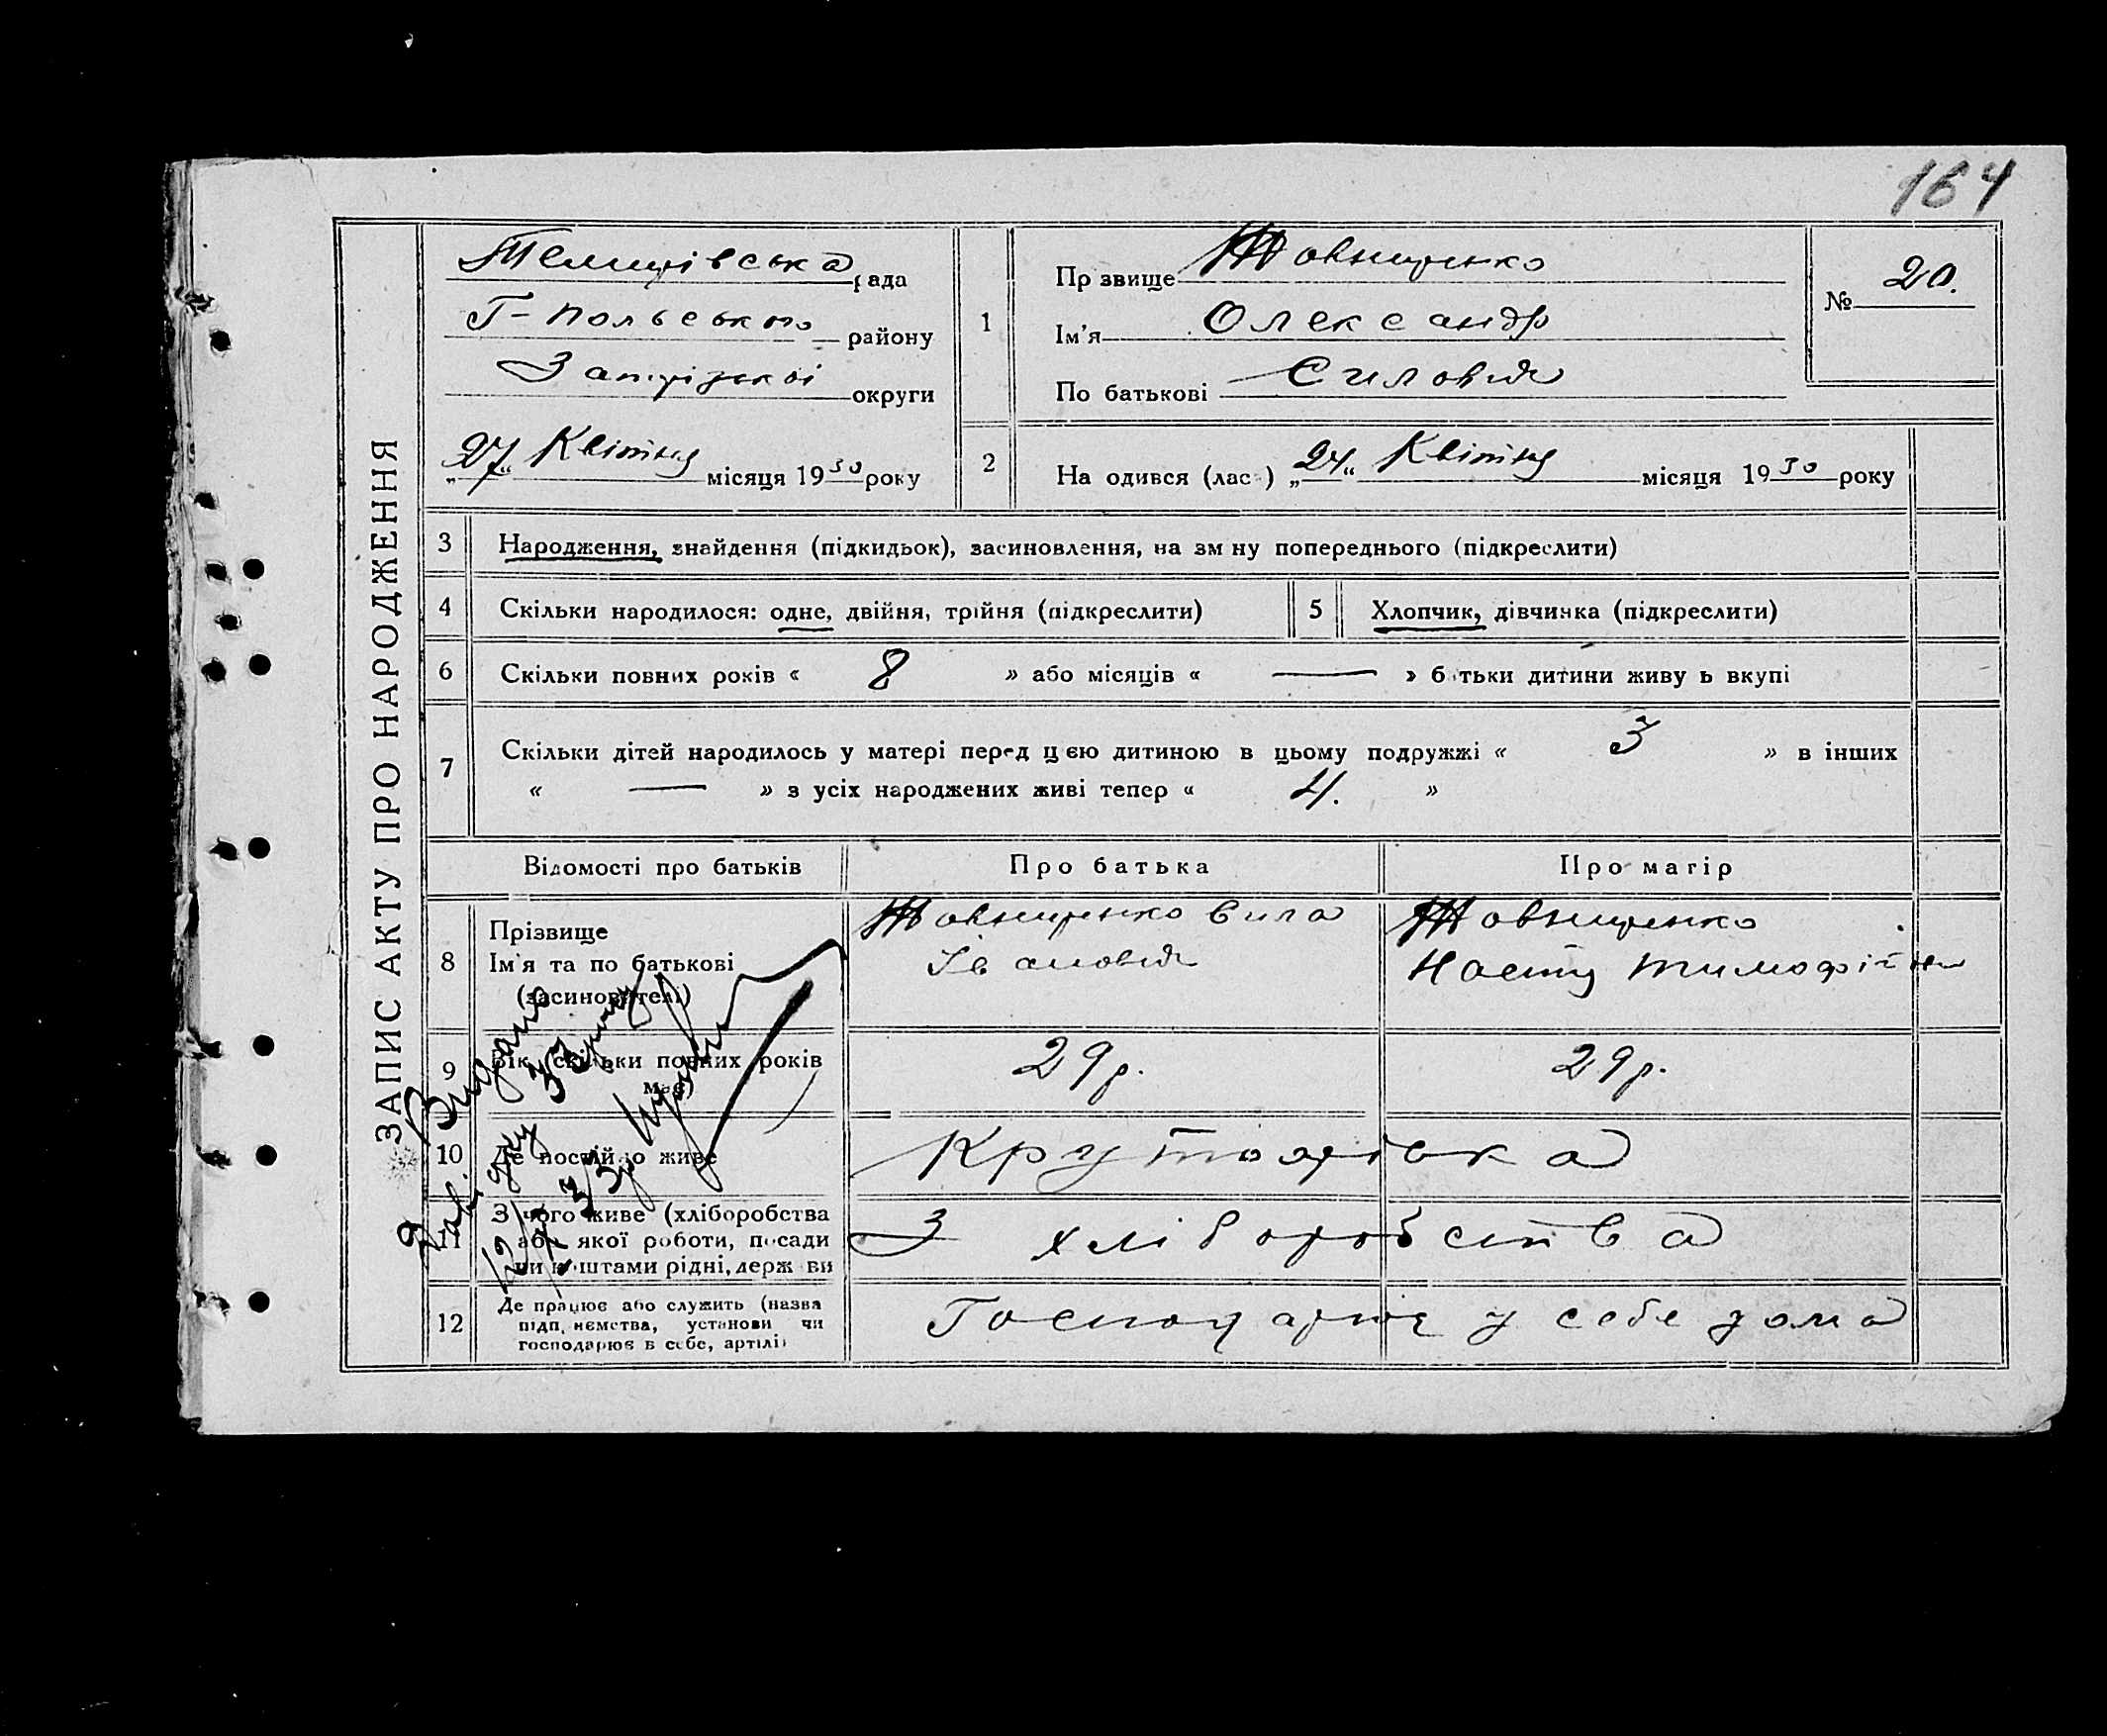 164
ЗАПИС АКТУ ПРО НАРОДЖЕННЯ
рада
Г-Польського району
округи
„27“ Квітня місяця 1930 року
1
Пр звище Жовниренко
Ім'я Олександр
По батькові Силович
№ 20.
2
На одився (лас ) „24“ Квітня місяця 1930 року
3 Народження, знайдення (підкидьок), засиновлення, на зм ну попереднього (підкреслити)
4 Скільки народилося: одне, двійня, трійня (підкреслити)
5 Хлопчик, дівчинка (підкреслити)
6 Скільки повних років « 8 » або місяців « — » б тьки дитини живу ь вкупі
7 Скільки дітей народилось у матері перед цією дитиною в цьому подружжі « 3 » в інших
« — » з усіх народжених живі тепер « 4. »
Відомості про батьків
Про батька
Про матір
8
Прізвище
Ім'я та по батькові
(засиновителі)
Жовниренко Сила
Іванович
Жовниренко
Настя Тимофійна
9
Вік (скільки повних років
має)
29 р.
29 р.
10 Де постійно живе
Крутоярівка
11
З чого живе (хліборобства
або якої роботи, посади
чи коштами рідні, держ ви
З хліборобства
12
Де працює або служить (назва
підп, ємства, установи чи
господарює в себе, артілі)
Господарює у себе дома
Видано